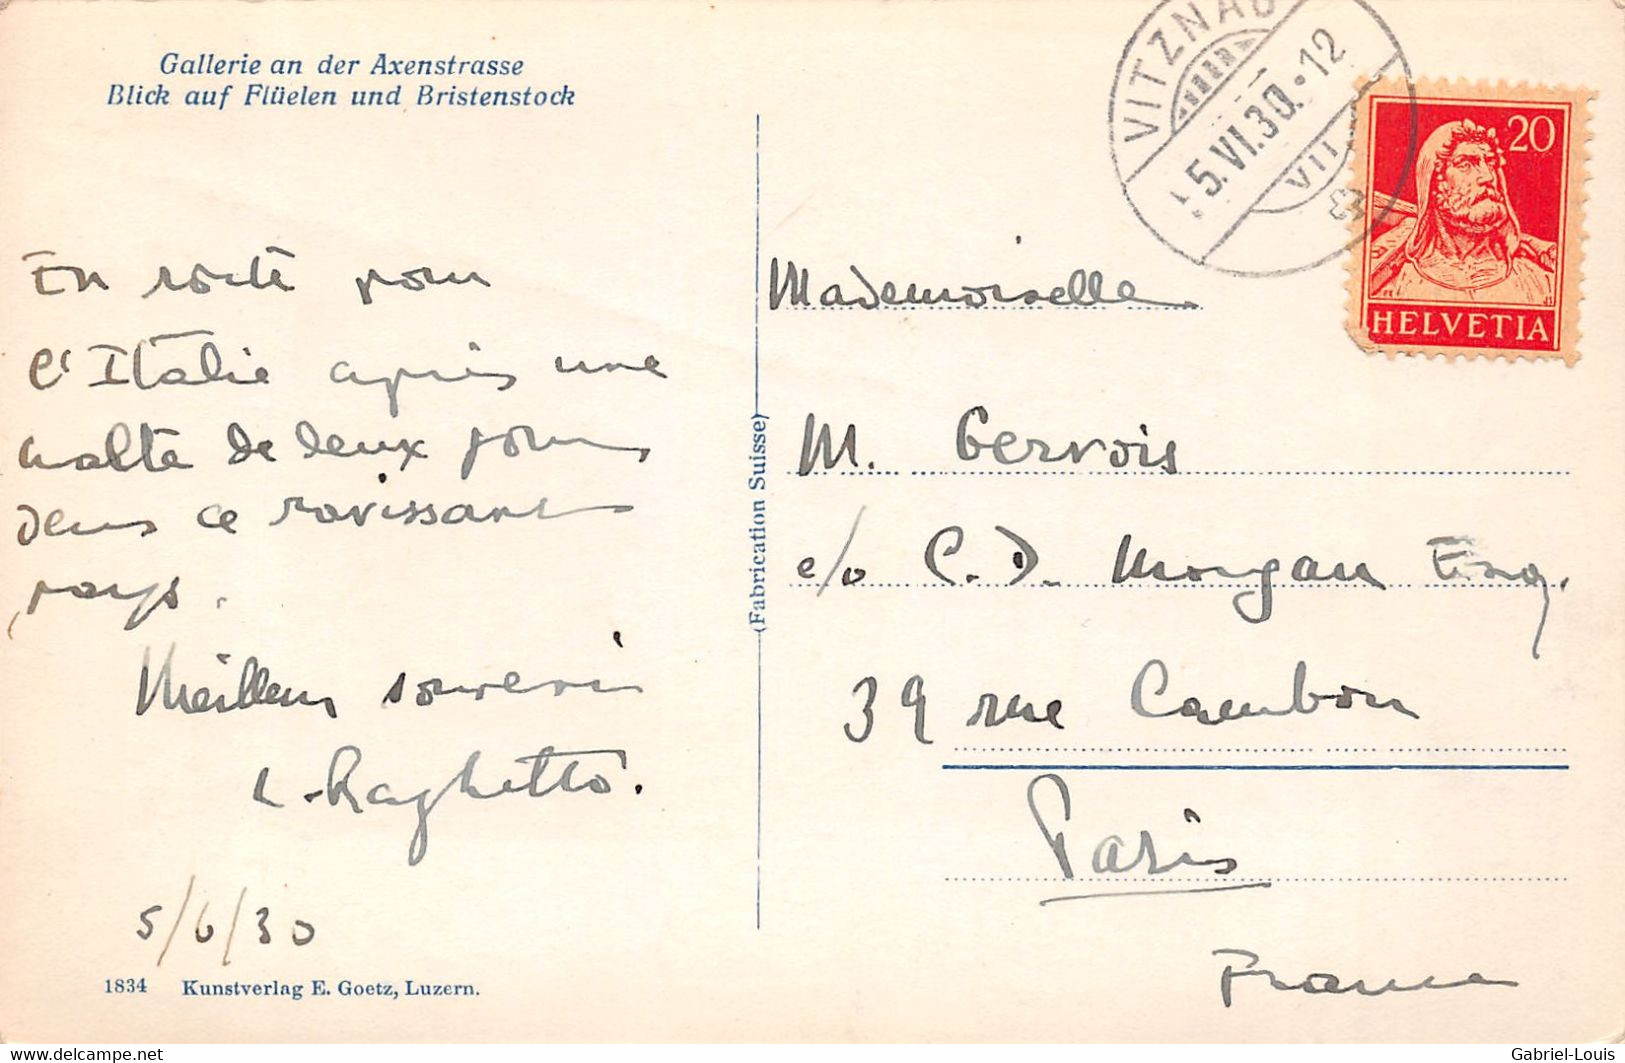 Gallerie an der Axenstrasse
Blick auf Flüelen und Bristenstock
En route pour
l'Italie après une
halte de deux jours
dans ce ravissant
pays.
Meilleur souvenir
L. Raghetto.
5/6/30
1834 Kunstverlag E. Goetz, Luzern.
(Fabrication Suisse)
VITZNAU
5.VI.30.•12
VII
20
HELVETIA
Mademoiselle
M. Gervois
c/o C. D. Morgan Esq.
39 rue Cambon
Paris
France
www.delcampe.net
Gabriel-Louis